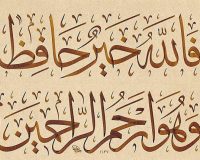 فَاللَّهُ خَيْرٌ حَافِظًا
وَهُوَ أَرْحَمُ الرَّاحِمِينَ